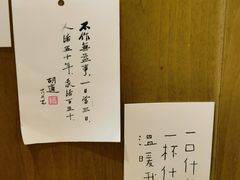 不作無益事，一日當三日，
人活五十年，我活百五十
胡適
一口什
一杯什
溫暖我